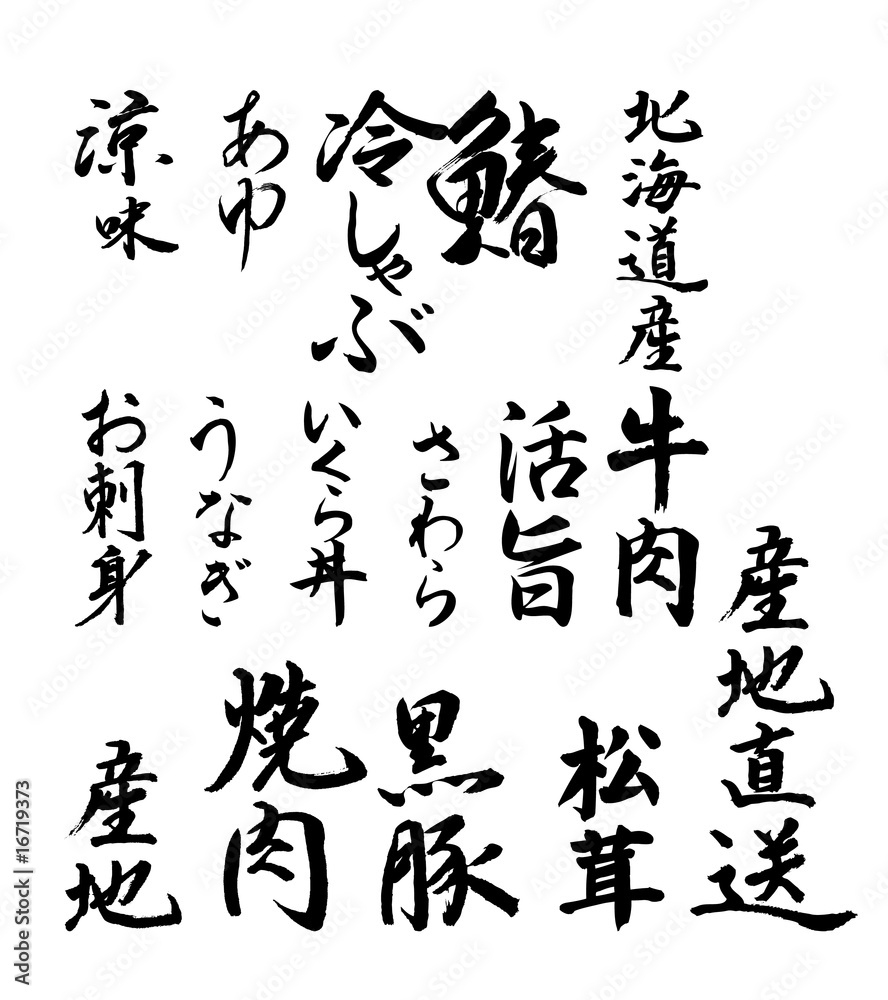 北海道産
鰆
冷しゃぶ
あゆ
涼味
牛肉
活旨
さわら
いくら丼
うなぎ
お刺身
産地直送
松茸
黒豚
焼肉
産地
Adobe Stock | #16719373
Adobe Stock